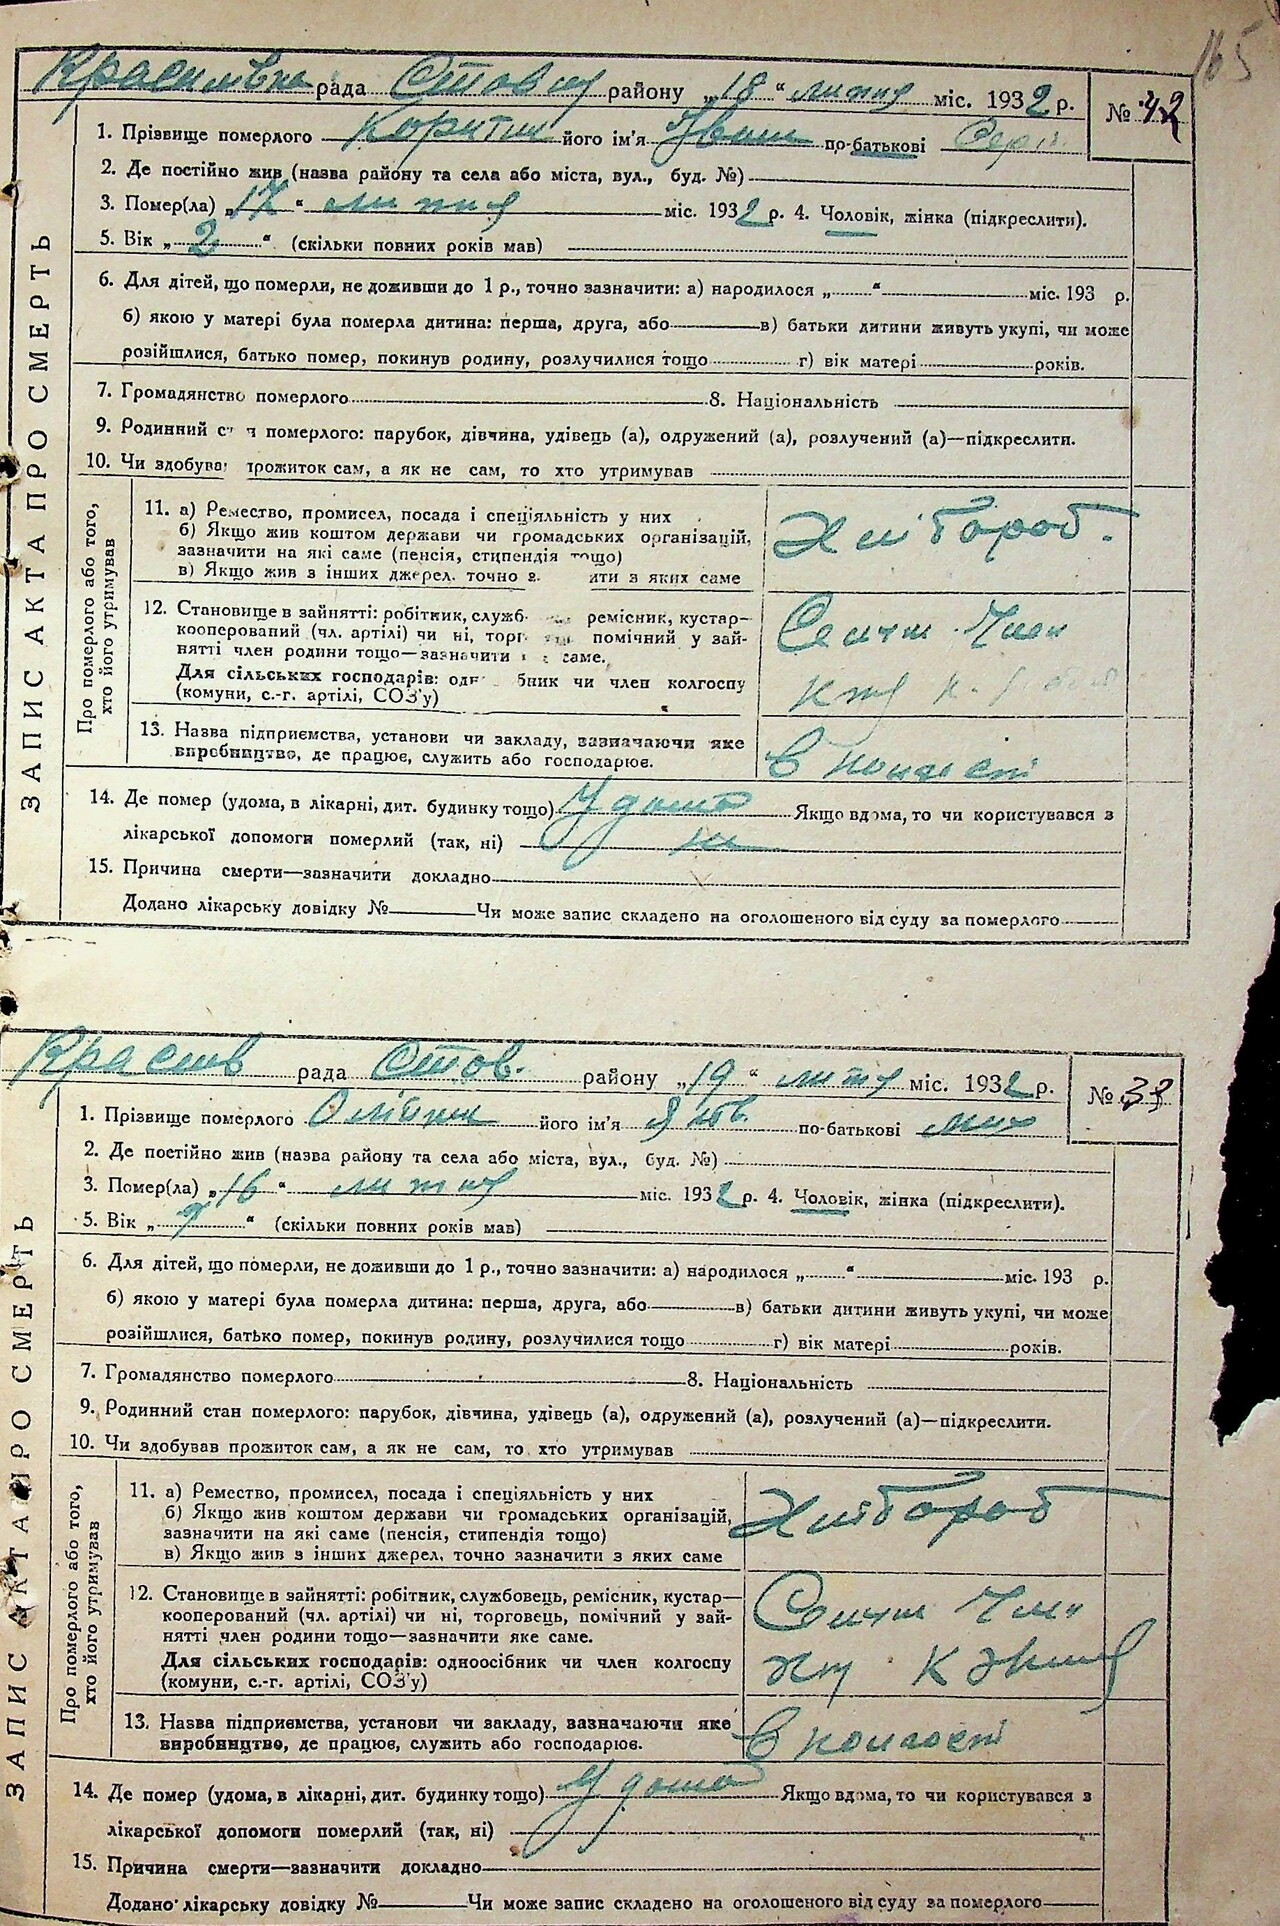 165
рада району „18“ липня міс. 1932 р. № 42
1. Прізвище померлого його ім'я Іван по-батькові
2. Де постійно жив (назва району та села або міста, вул., буд. №)
3. Помер(ла) „17“ липня міс. 1932 р. 4. Чоловік, жінка (підкреслити).
5. Вік „2“ (скільки повних років мав)
6. Для дітей, що померли, не доживши до 1 р., точно зазначити: а) народилося „ “ міс. 193 р.
б) якою у матері була померла дитина: перша, друга, або в) батьки дитини живуть укупі, чи може
розійшлися, батько помер, покинув родину, розлучилися тощо г) вік матері років.
7. Громадянство померлого 8. Національність
9. Родинний ст н померлого: парубок, дівчина, удівець (а), одружений (а), розлучений (а)—підкреслити.
10. Чи здобува прожиток сам, а як не сам, то хто утримував
ЗАПИС АКТА ПРО СМЕРТЬ
Про померлого або того,
хто його утримував
11. а) Ремество, промисел, посада і спеціяльність у них
б) Якщо жив коштом держави чи громадських організацій,
зазначити на які саме (пенсія, стипендія тощо)
в) Якщо жив з інших джерел, точно з ити з яких саме
Хліборoб.
12. Становище в зайнятті: робітник, служб ремісник, кустар—
кооперований (чл. артілі) чи ні, торг помічний у зай-
нятті член родини тощо—зазначити саме.
Для сільських господарів: од бник чи член колгоспу
(комуни, с.-г. артілі, СОЗ'у)
Член
13. Назва підприємства, установи чи закладу, зазначаючи яке
виробництво, де працює, служить або господарює.
в колгоспі
14. Де помер (удома, в лікарні, дит. будинку тощо) У дома Якщо вдома, то чи користувався з
лікарської допомоги померлий (так, ні) ні
15. Причина смерти—зазначити докладно
Додано лікарську довідку № Чи може запис складено на оголошеного від суду за померлого
рада Стов. району „19“ липня міс. 1932 р. № 33
1. Прізвище померлого Олійник його ім'я по-батькові Мих
2. Де постійно жив (назва району та села або міста, вул., буд. №)
3. Помер(ла) „16“ липня міс. 1932 р. 4. Чоловік, жінка (підкреслити).
5. Вік „ “ (скільки повних років мав)
6. Для дітей, що померли, не доживши до 1 р., точно зазначити: а) народилося „ “ міс. 193 р.
б) якою у матері була померла дитина: перша, друга, або в) батьки дитини живуть укупі, чи може
розійшлися, батько помер, покинув родину, розлучилися тощо г) вік матері років.
7. Громадянство померлого 8. Національність
9. Родинний стан померлого: парубок, дівчина, удівець (а), одружений (а), розлучений (а)—підкреслити.
10. Чи здобував прожиток сам, а як не сам, то хто утримував
ЗАПИС АКТА ПРО СМЕРТЬ
Про померлого або того,
хто його утримував
11. а) Ремество, промисел, посада і спеціяльність у них
б) Якщо жив коштом держави чи громадських організацій,
зазначити на які саме (пенсія, стипендія тощо)
в) Якщо жив з інших джерел, точно зазначити з яких саме
Хлібороб
12. Становище в зайнятті: робітник, службовець, ремісник, кустар—
кооперований (чл. артілі) чи ні, торговець, помічний у зай-
нятті член родини тощо—зазначити яке саме.
Для сільських господарів: одноосібник чи член колгоспу
(комуни, с.-г. артілі, СОЗ'у)
Член
13. Назва підприємства, установи чи закладу, зазначаючи яке
виробництво, де працює, служить або господарює.
в колгоспі
14. Де помер (удома, в лікарні, дит. будинку тощо) У дома Якщо вдома, то чи користувався з
лікарської допомоги померлий (так, ні)
15. Причина смерти—зазначити докладно
Додано лікарську довідку № Чи може запис складено на оголошеного від суду за померлого